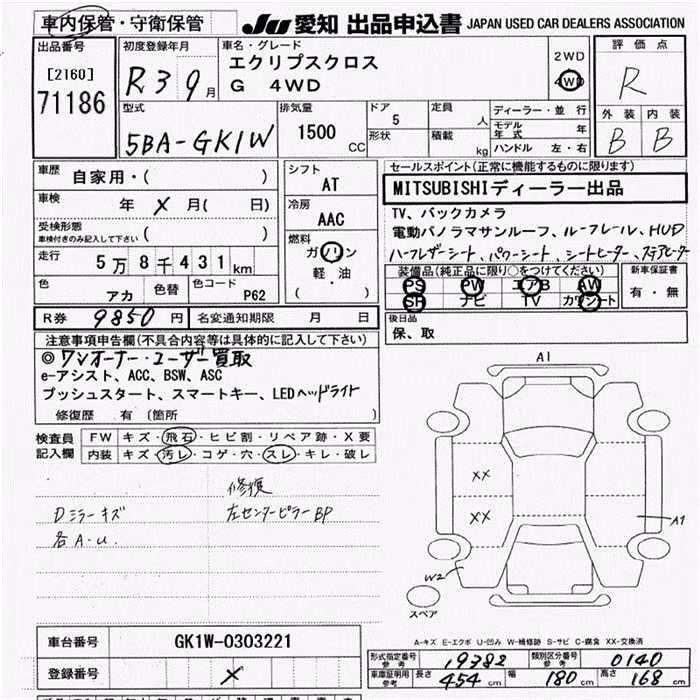 車内保管・守衛保管
JU 愛知 出品申込書 JAPAN USED CAR DEALERS ASSOCIATION
出品番号
[2160]
71186
初度登録年月
R3 9月
車名・グレード
エクリプスクロス
G 4WD
2WD
4WD
評価点
R
外装 内装
B B
型式
5BA-GK1W
排気量
1500 CC
ドア
5
形状
定員
人
積載
kg
ディーラー・並行
モデル年式 年
ハンドル 左・右
車歴
自家用・( )
車検
年 X 月( 日)
受検形態
車検付きのみ記入して下さい ( )
走行
5万8千431km
色
アカ
色替
色コード
P62
シフト
AT
冷房
AAC
燃料
ガソリン
軽・油
( )
セールスポイント(正常に機能するものに限ります)
MITSUBISHIディーラー出品
TV、バックカメラ
電動パノラマサンルーフ、ルーフレール、HUD
ハーフレザーシート、パワーシート、シートヒーター、ステアヒーター
装備品(純正品に限り○をつけてください)
PS PW エアB AW
SR ナビ TV カワシート
新車保証書
有・無
R券 9850円
名変通知期限 月 日
後日品
保、取
注意事項申告欄(不具合内容等は具体的に記入して下さい)
◎ワンオーナー・ユーザー買取
e-アシスト、ACC、BSW、ASC
プッシュスタート、スマートキー、LEDヘッドライト
修復歴 有 (箇所 )
検査員記入欄
FW キズ・飛石・ヒビ割・リペア跡・X要
内装 キズ・汚レ・コゲ・穴・スレ・キレ・破レ
修復
Dミラーキズ 左センターピラーBP
各A・U.
A1
XX
XX
A1
W2
スペア
A-キズ E-エクボ U-凹み W-補修跡 S-サビ C-腐食 XX-交換済
車台番号
GK1W-0303221
登録番号
X
形式指定番号 参考
19382
類別区分番号 参考
0140
車庫証明用 参考
長さ 454 cm 幅 180 cm 高さ 168 cm